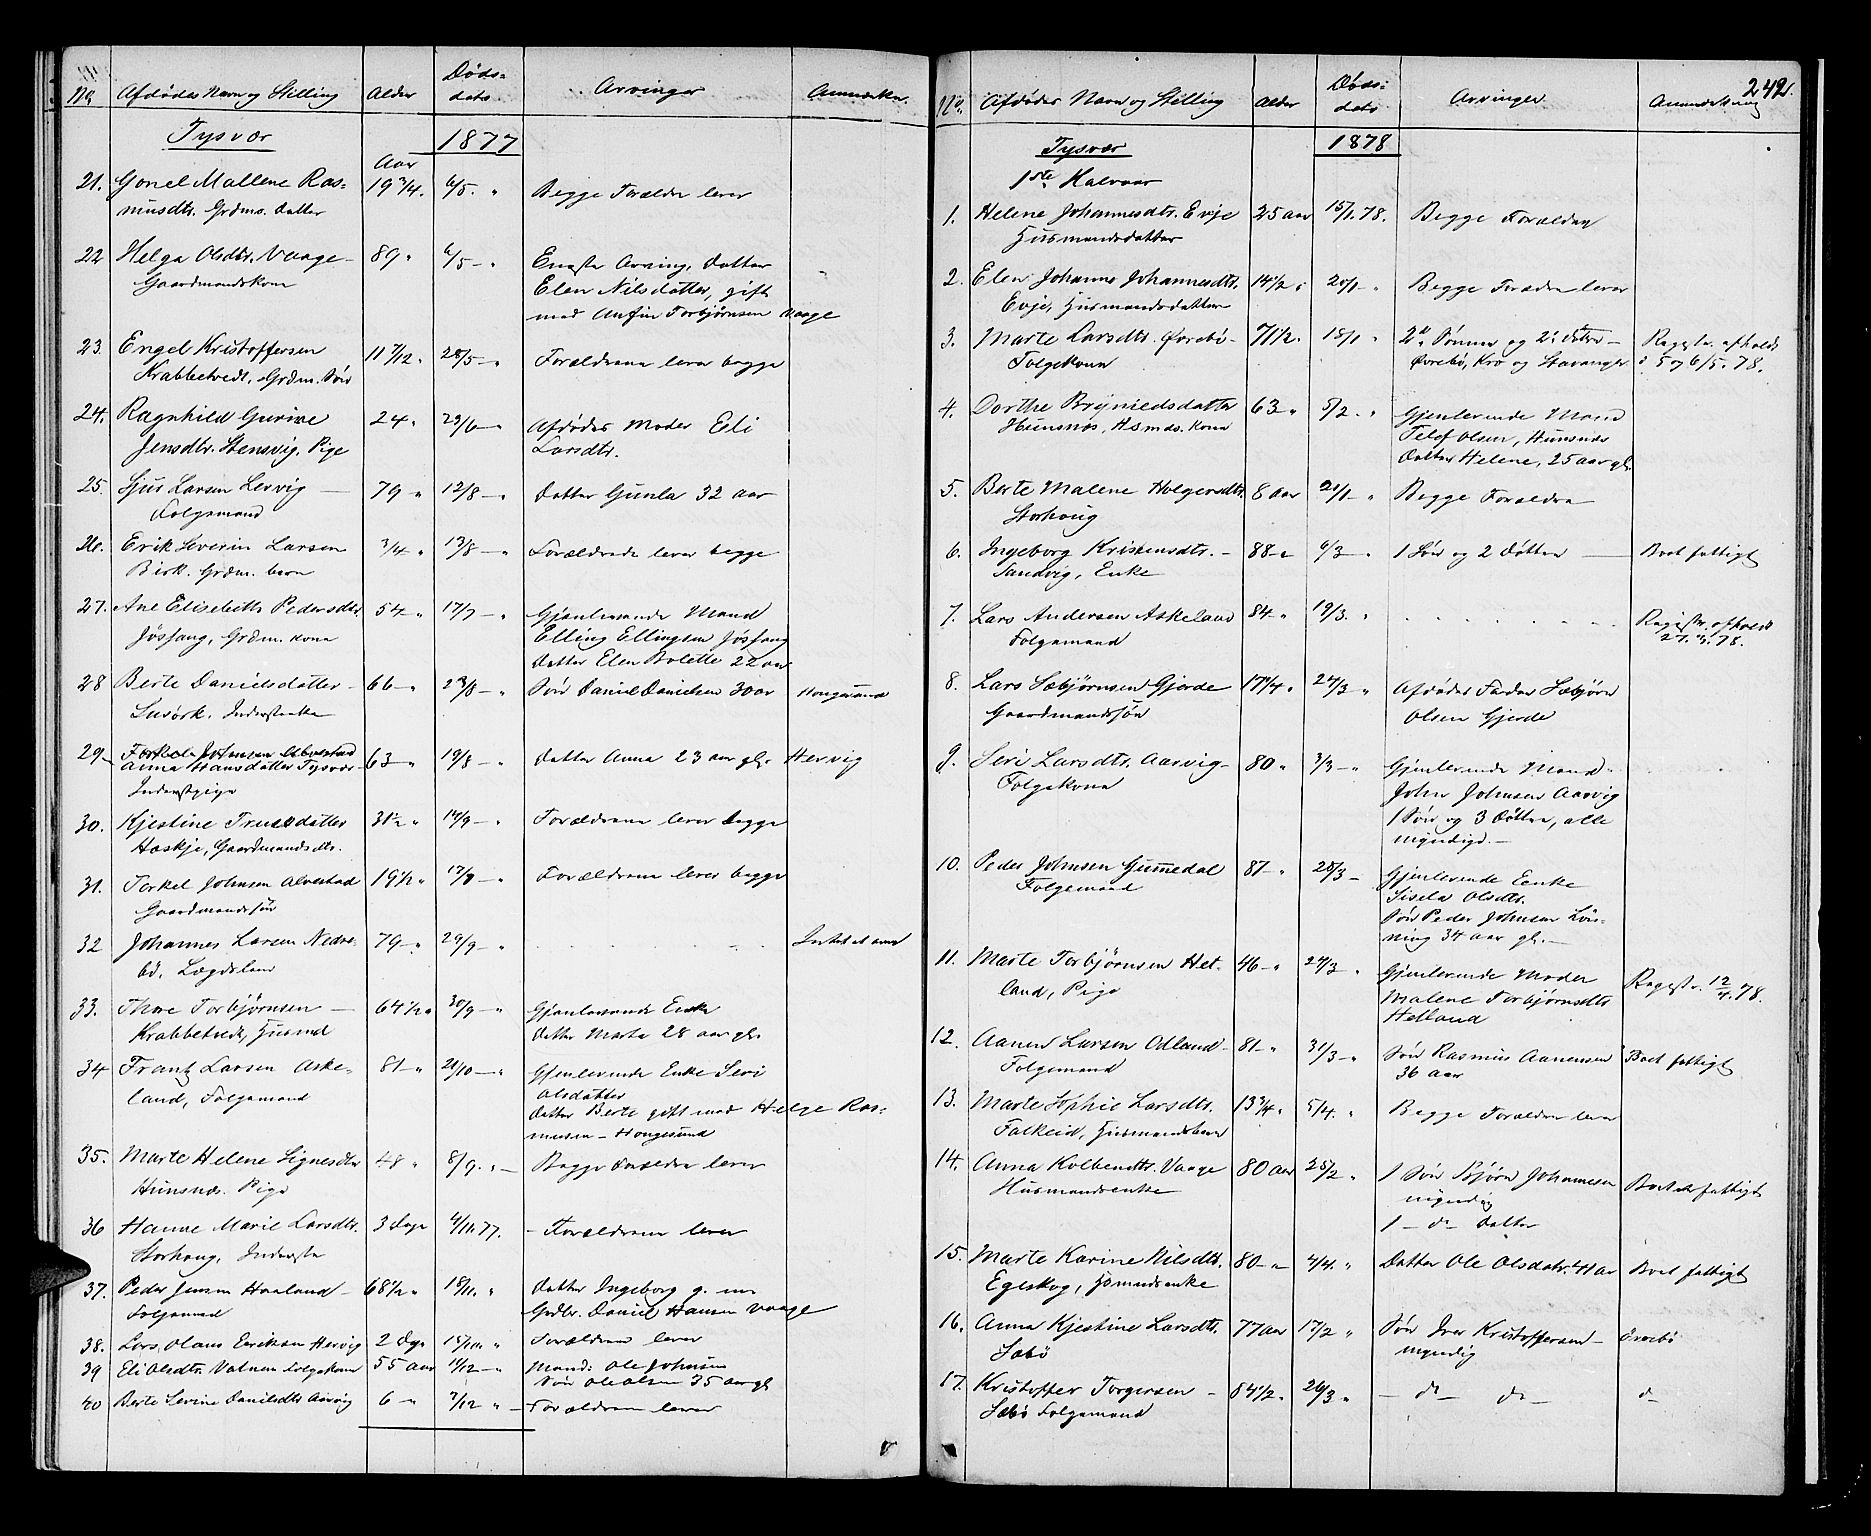 No Afdødes Navn og Stilling Alder Døds-dato Arvinger Anmærkn.
Tysvær 1877
Aar
21. Gonel Mallene Ras- 19 3/4. 6/5. " Begge Forældre lever
musdtr. Grdms. datter
22 Helga Olsdtr. Vaage - 89 " 6/5 - " Eneste Arving, datter
Gaardmandskone Elen Nilsdatter, gift
med Anfin Torbjørnsen Vaage
23. Engel Kristoffersen 11 7/12 " 28/5 - " Forældrene lever begge
Krabbetvedt, Grdm. Søn
24. Ragnhild Gurine 24 " 23/6 - " Afdødes Moder Eli
Jensdtr. Stensvig, Pige Larsdtr.
25. Sjur Larsen Lervig - 79 " 12/8 - " Datter Gunla 32 aar
Folgemand
26. Erik Severin Larsen 3/4 " 13/8 - " Forældrene lever begge
Birk. Grdm. barn
27. Ane Elisebeth Pedersdtr. 54 " 17/7 - " Gjenlevende Mand
Jøsfang, Grdm. kone Elling Ellingsen Jøsfang
datter Elen Bolette 22 aar
28 Berte Danielsdatter - 66 - " 23/8 - " Søn Daniel Danielsen 30 ar Haugesund
Inderstenke
29 Torkel Johnsen Alvestad
Anna Hansdatter Tysvær 63 " 19/8 - " datter Anna 23 aar gl. Hervig
Inderstpige
30. Kjestine Trulsdatter 31 1/2 " 14/9 - " Forældrene lever begge
Haskje, Gaardmandsdtr.
31. Torkel Johnsen Alvestad 19 1/2 " 17/8 - " Forældrene lever begge
Gaardmandssøn
32 Johannes Larsen Nedre- 79 - " 29/9 - "
bø. Lægdslem
33. Thore Torbjørnsen - 64 1/2 " 30/9 - " Gjenlevende Enke
Krabbetvedt, Husmd datter Marta 28 aar gl.
34 Frantz Larsen Aske- 81 " 21/10 - " Gjenlevende Enke Seri
land, Folgemand Olsdatter
datter Berte gift med Helge Ras-
musen - Haugesund
35. Marte Helene Signesdtr 48 " 8/9. " - Begge Forældre lever
Hunsnæs. Pige
36 Hanne Marie Larsdtr. 3 dage 4/11. 77. - Forældrene lever
Storhaug, Inderste
37. Peder Jensen Haaland - 68 1/2 " 18/11. " Datter Ingeborg g. m.
Folgemand Grdbr. Daniel Hansen Vaage
38. Lars Olaus Eriksen Hervig 2 dage 15/10. " Forældrene lever
39 Eli Olsdtr. Vatnem Folgekone 55 aar 11/12 - " Mand: Ole Johnsen
Søn Ole Olsen 35 aar gl
40 Berte Serine Danilsdtr Aarvig 6 " 7/12 " - Forældrene lever
242.
No. Afdødes Navn og Stilling Alder Døds-dato Arvinger Anmærkning
Tysvær 1878
1ste Halvaar
1. Helene Johannesdtr. Evje 25 aar 15/1. 78. Begge Forældre
Husmandsdatter
2. Elen Johanne Johannesdtr. 14 1/2 " 20/1 - " Begge Forældre lever
Evje, Husmandsdatter
3. Marte Larsdtr. Øvrebø - 71 1/2 " 18/1 " 2 Sønner og 2 døtre - Registr. afholdt
Folgekone Øvrebø, Kro og Stavanger 5 og 6/5. 78.
4. Dorthe Brynieldsdatter 63 " 5/2. " Gjenlevende Mand
Hunsnes, Hsmds. kone Telef Olsen, Hunsnæs
datter Helene, 25 aar gl.
5. Berte Malene Holgersdtr. 8 aar 21/1 - " Begge Forældre
Storhaug
6. Ingeborg Kristensdtr. - 88 - " 6/3 - " 1 Søn og 2 døttre - Boet fattigt
Sandvig, Enke
7. Lars Andersen Askeland 84 - " 19/3. " Registr. afholdt
Folgemand
8. Lars Sæbjørnsen Gjerde 17 1/4 " 24/3 " Afdødes Fader Sæbjørn
Gaardmandssøn Olsen Gjerde
9. Seri Larsdtr. Aarvig - 80 " 3/3 - " Gjenlevende Mand
Folgekone John Johnsen Aarvig
1 Søn og 3 døttre, alle
myndige. -
10. Peder Johnsen Gumedal 87 - " 28/3 - Gjenlevende Eenke
Folgemand Sisela Olsdtr.
Søn Peder Johnsen Løn-
ning 34 aar gl. -
11. Marte Torbjørnsen Het- 46 - " 24/3 " Gjenlevende Moder Registr. 12/4. 78.
land, Pige Malene Torbjørnsdtr.
Hetland
12. Aanen Larsen Odland - 81 - " 31/3 - " Søn Rasmus Aanensen Boet fattigt
Folgemand 36 aar
13. Marte Sophie Larsdtr. 13 3/4 " 5/4. " Begge Forældre lever
Falkeid, Husmandsbarn
14. Anna Kolbendtr. Vaage 80 aar 25/2 " 1 Søn Bjørn Johannesen Boet fattigt
Husmandsenke myndig
1 - do - datter
15. Marte Karine Nilsdtr. 80 - " 4/4. " Datter Ole Olsdtr. 41 ar Boet fattigt
Egeskog, Hsmndsenke
16. Anna Kjestine Larsdtr. 77 aar 17/2 " Søn Iver Kristoffersen - Øvrebø
Sæbø myndig
17. Kristoffer Torgersen - 84 1/2 " 26/3 " - do - do - do
Sæbø Folgemand